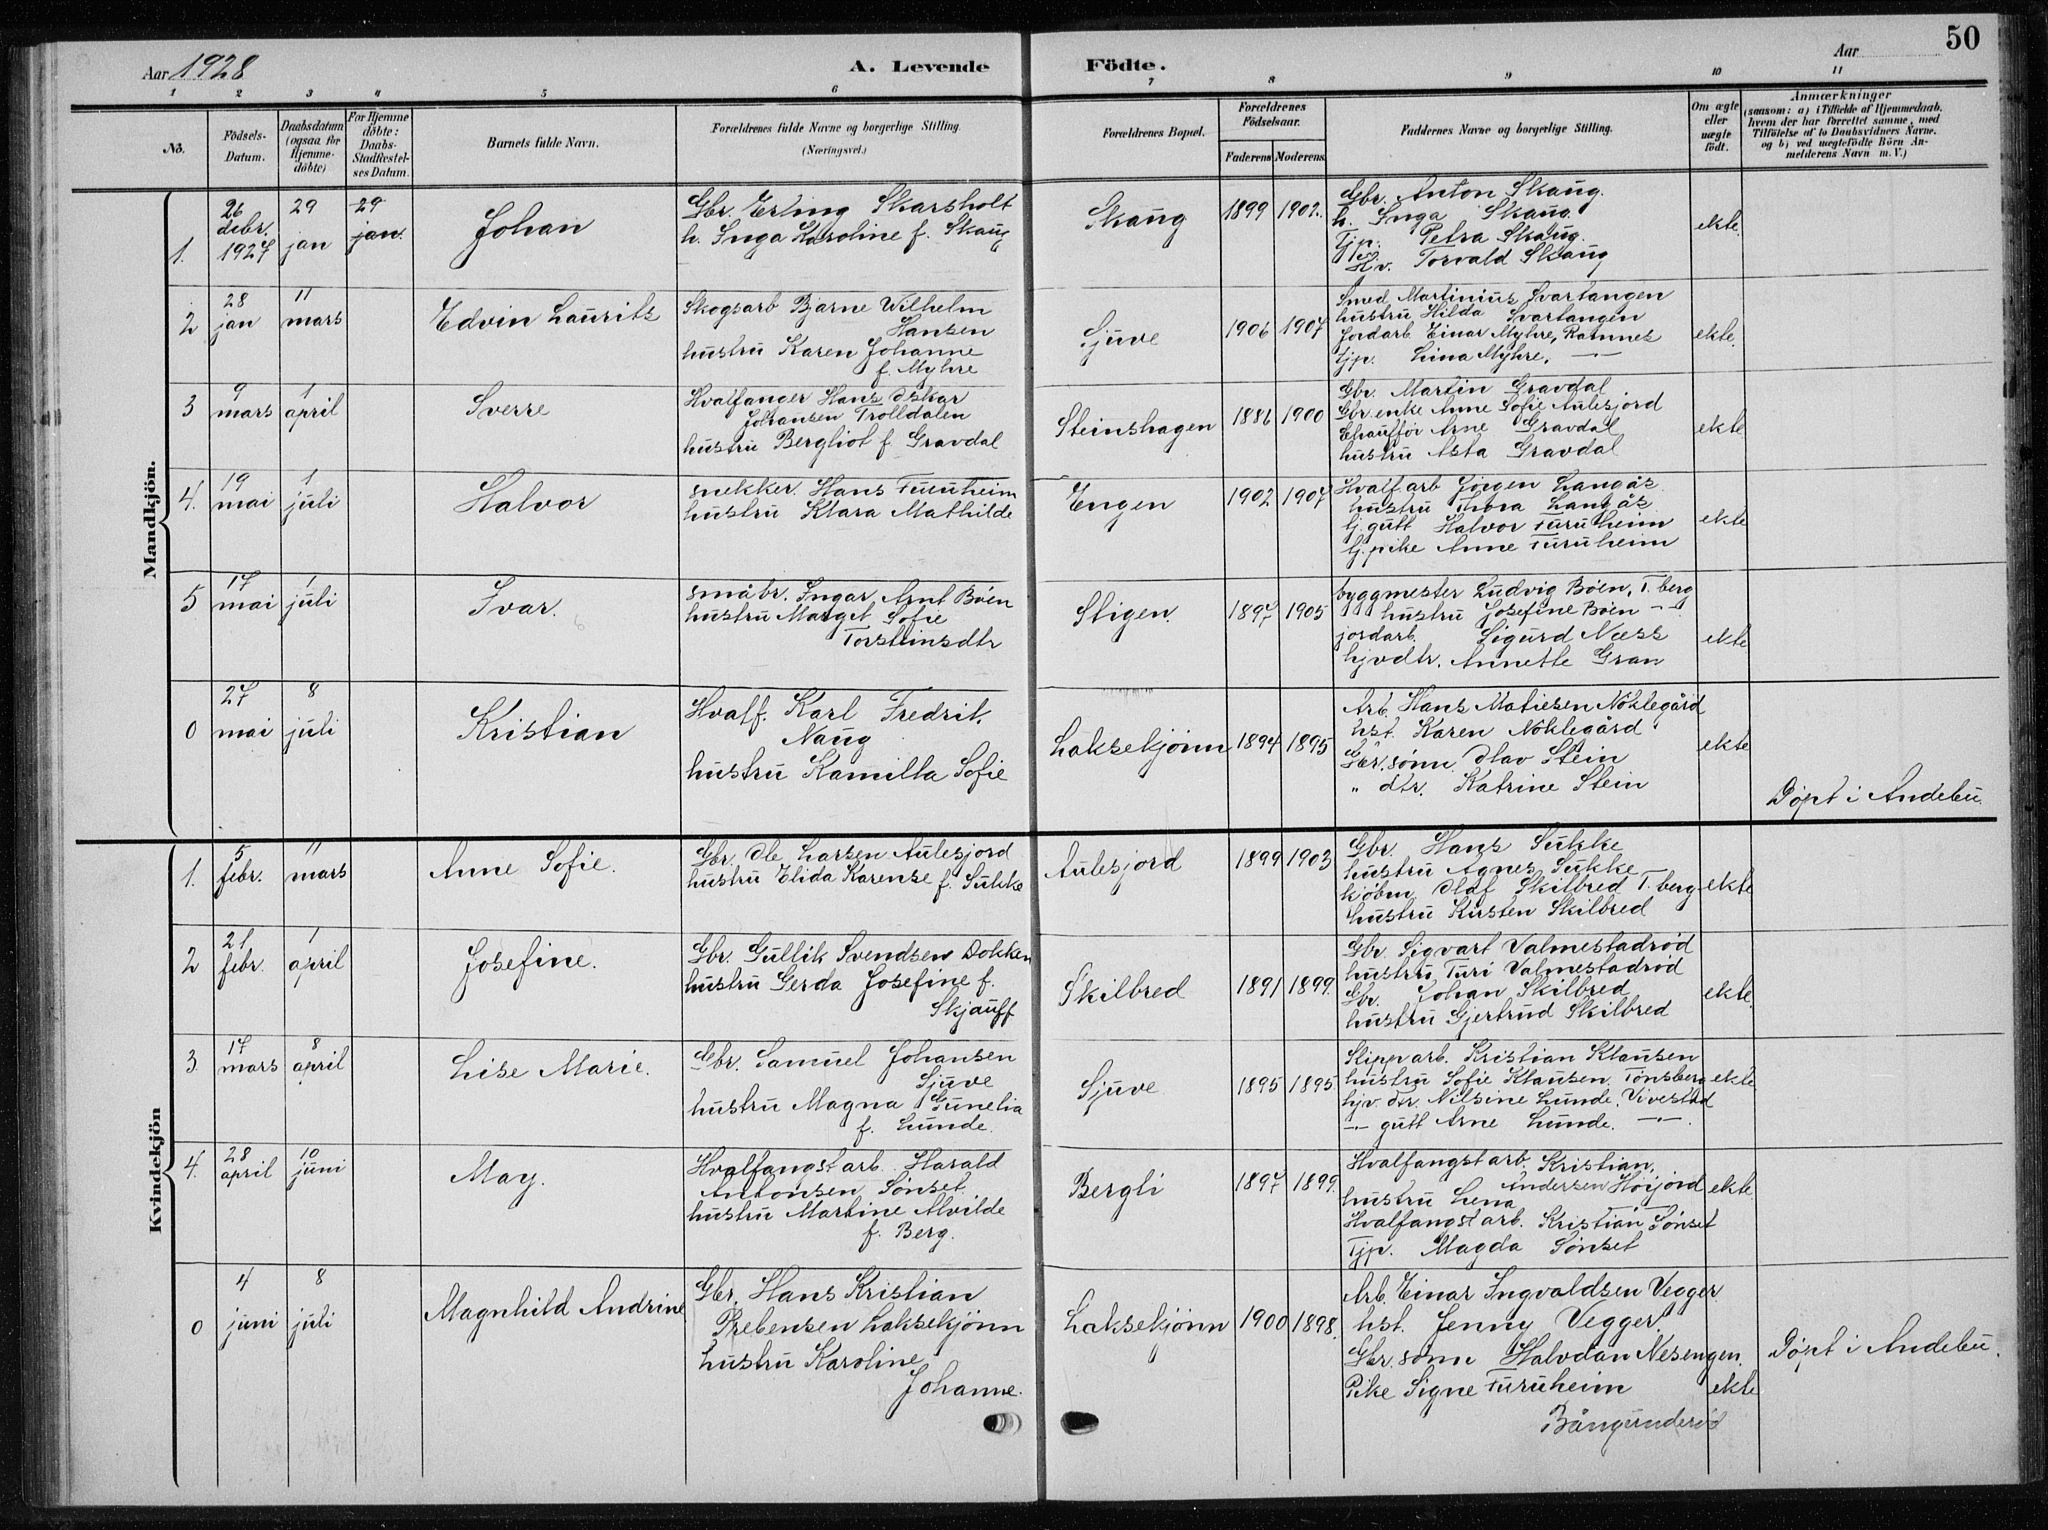 50
Aar 1928
A. Levende Födte.
Aar
1 2 3 4 5 6 7 8 9 10 11
No.
Födsels-
Datum.
Daabsdatum
(ogsaa for
Hjemme-
döbte)
For Hjemme
döbte:
Daabs-
Stadfæstel-
ses Datum.
Barnets fulde Navn.
Forældrenes fulde Navne og borgerlige Stilling.
(Næringsvei.)
Forældrenes Bopæl.
Forældrenes
Födselsaar.
Faderens. Moderens.
Faddernes Navne og borgerlige Stilling.
Om ægte
eller
uægte
födt.
Anmærkninger
(saasom: a) i Tilfælde af Hjemmedaab.
hvem der har forrettet samme, med
Tilföielse af to Daabsvidners Navne.
og b) ved uægtefödte Börn An-
melderens Navn m. V.)
Mandkjön.
1.
26
debr.
1927
29
jan
29
jan.
Johan
Gbr. Erling Skarsholt
h. Inga Karoline f. Skaug
Skaug
1899
1902.
Gbr. Anton Skaug.
h. Inga Skaug
Tjp. Petra Skaug.
Torvald Skaug
ekte.
2
28
jan
11
mars
Edvin Laurits
Skogsarb Bjarne Wilhelm
Hansen
hustru Karen Johanne
f. Myhre
Sjuve
1906
1907
Smed Martinius Svartangen
hustru Hilda Svartangen
Jordarb Einar Myhre, Ramnes
tjp. Lina Myhre, —
ekte.
3
9
mars
1
april
Sverre
Hvalfanger Hans Oskar
Johansen Trolldalen
hustru Bergliot f. Gravdal
Steinshagen
1886
1900
Gbr. Martin Gravdal
Gbr.enke Anne Sofie Aulesjord
Chauffør Arne Gravdal
hustru Asta Gravdal
ekte
4.
19
mai
1
juli
Halvor
snekker. Hans Furuheim
hustru Klara Mathilde
Engen
1902
1907
Hvalfarb Jörgen Langås
hustru Thora Langås
tj.gutt Halvor Furuheim
tj.pike Anne Furuheim
ekte
5
17
mai
1
juli
Ivar.
småbr. Ingar Arnt Böen
hustru Marget Sofie
Torsteinsdtr
Stigen.
1897
1905
byggmester Ludvig Böen, T.berg
hustru Josefine Böen — —
jordarb. Sigurd Næss
hjvdtr. Annette Gran
ekte
0
27
mai
8
juli
Kristian
Hvalf. Karl Fredrik
Naug
hustru Kamilla Sofie
Laksekjönn
1894
1895
Arb. Hans Matiesen Nöklegård
hst. Karen Nöklegård
Gbr. sønn Olav Stein
" dtr. Katrine Stein
ekte
Döpt i Andebu.
Kvindekjön
1.
5
febr.
11
mars
Anne Sofie.
Gbr. Ole Larsen Aulesjord
hustru Elida Karense f. Sukke
Aulesjord
1899
1903
Gbr. Hans Sukke
hustru Agnes Sukke
kjöbm Olaf Skilbred T.berg
hustru Kirsten Skilbred
ekte
2
21
febr.
1
april
Josefine.
Gbr. Gullik Svendsen Dokken
hustru Gerda Josefine f.
Skjauff
Skilbred
1891
1899.
Gbr Sigvart Valmestadrød
hustru Turi Valmestadrød
Gbr. Johan Skilbred
hustru Gjertrud Skilbred
ekte
3.
17
mars
8
april
Lise Marie.
Gbr. Samuel Johansen
Sjuve
hustru Magna Gunelia
f. Lunde.
Sjuve
1895
1895
Slipparb. Kristian Klausen
hustru Sofie Klausen, Tönsberg
hjv. dtr. Nilsine Lunde, Vivestad
— gutt Arne Lunde. —
ekte
4.
28
april
10
juni
May.
Hvalfangstarb. Harald
Antonsen Sönset
hustru Martine Alvilde
f. Berg.
Bergli
1897
1899.
Hvalfangstarb. Kristian
Andersen Höijord
hustru Lena
Hvalfangstarb. Kristian Sönset
Tjp. Magda Sönset
ekte
0
4
juni
8
juli
Magnhild Andrine
Gbr. Hans Kristian
Prebensen Laksekjönn
hustru Karoline
Johanne.
Laksekjönn
1900
1898.
Arb. Einar Ingvaldsen Vegger
hst. Jenny Vegger
Gbr. sønn Halvdan Nesengen.
Pike Signe Furuheim
Bångunderød
ekte
Döpt i Andebu.